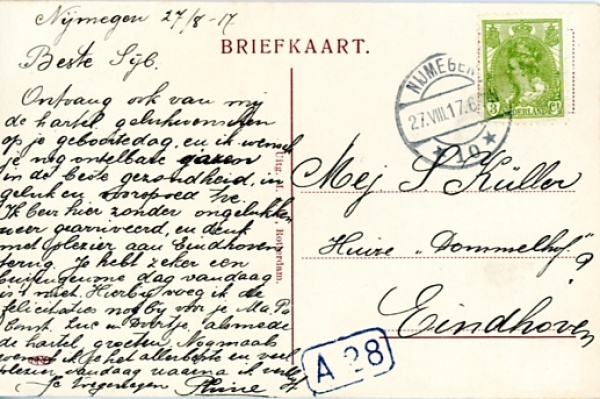 Nijmegen 27/8-17.
BRIEFKAART.
Beste Sijb.
Ontvang ook van mij
de hartel. gelukwenschen
op je geboortedag, en ik wensch
je nog ontelbare
in de beste gezondheid, in
geluk en voorspoed
Ik ben hier zonder ongelukken
weer gearriveerd, en denk
met plezier aan Eindhoven
terug. Je hebt zeker een
buitengewone dag vandaag
is 't niet. Hierbij voeg ik de
felicitaties nog bij voor je Ma, Pa
Ernst, Luc en alsmede
de hartel. groeten. Nogmaals
wensch ik je het allerbeste en veel
plezier vandaag waarna ik
Je toegenegen
Uitg. Rotterdam.
NIJMEGEN
27.VIII.17.6
10
3 Ct
NEDERLAND
Mej. S. Küller
Huize "Dommelhof"
Eindhoven
A 28